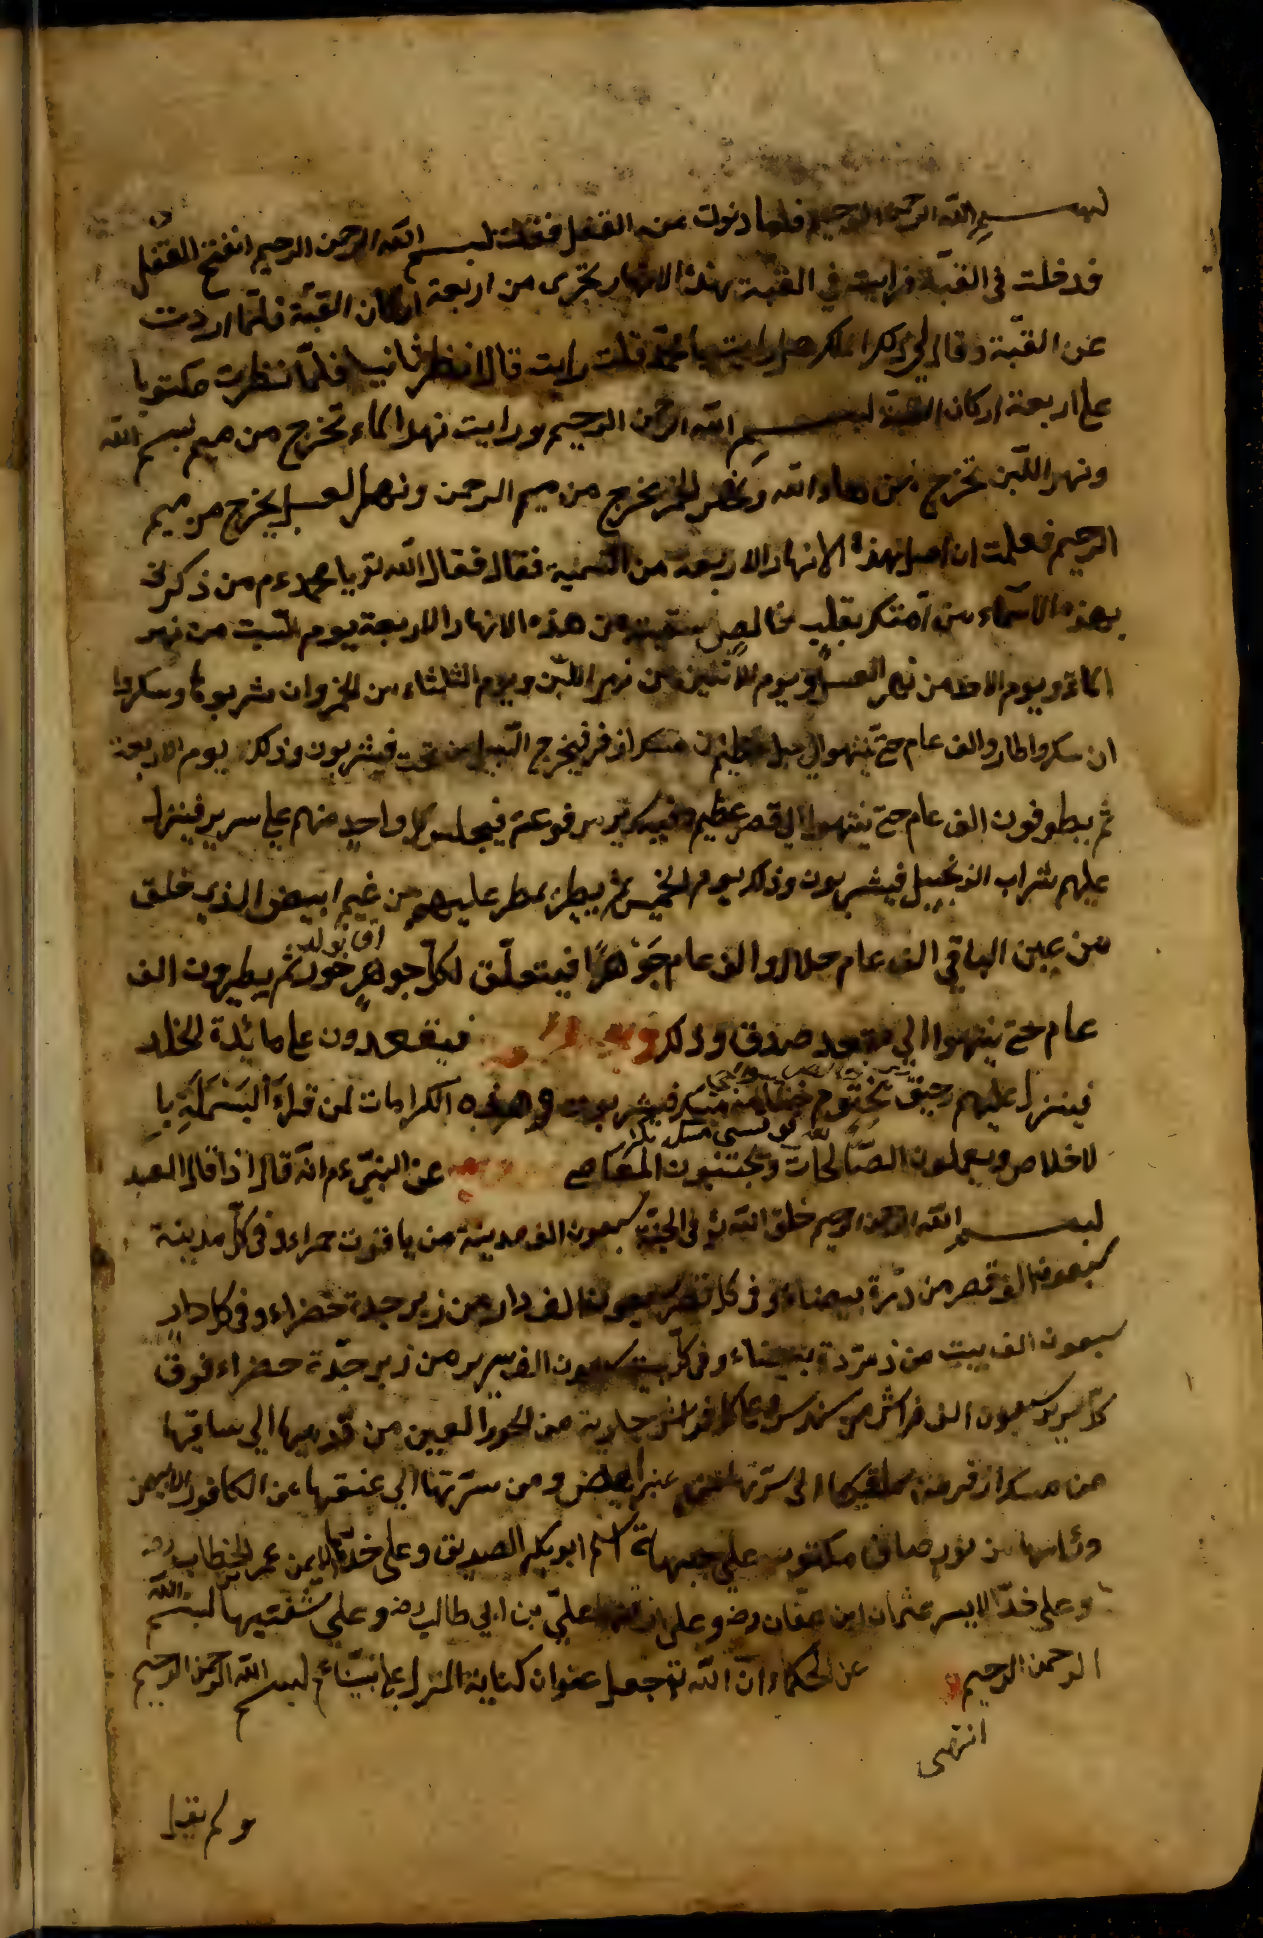 بسم الله الرحمن الرحيم فلما دنوت من القفل فقلت بسم الله الرحمن الرحيم انفتح القفل
فدخلت في القبّة فرايت في القبّة هذه الانهار تجرى من اربعة اركان القبّة فلمّا اردت
عن القبّة وقال لي ذلك الملك هل رايت يا محمّد قلت رايت قال انظر ثانيا فلمّا نظرت مكتوبا
على اربعة اركان القبّة بسم الله الرحمن الرحيم ورايت نهر الماء تخرج من ميم بسم الله
ونهر اللّبن تخرج من هاء الله ونهر الخمر يخرج من ميم الرحمن ونهر العسل يخرج من ميم
الرحيم فعلمت ان اصل هذه الانهار الاربعة من التسمية فقال فقال الله تع يا محمد عم من ذكرني
بهذه الاسمآء من امّتك بقلب خالص سقيته من هذه الانهار الاربعة يوم السّبت من نهر
الماء ويوم الاحد من نهر العسل ويوم الاثنين من نهر اللّبن ويوم الثلثاء من الخمر وان شربوها وسكروا
ان سكروا طاروا الف عام حتى ينتهوا الى جبل عظيم من مسك اذفر فيخرج السّلسبيل من تحت فيشربون وذلك يوم الاربعة
ثم يطوفون الف عام حتى ينتهوا الى قصر عظيم وفيه سرير مرفوعة فيجلس كل واحد منهم على سرير فينزل
عليهم شراب الزنجبيل فيشربون وذلك يوم الخميس ثم يطر يمطر عليهم من غيم ابيض الذي خلق
من عين الباقي الف عام حلال والف عام جَوْهرًا فيتعلّق لكلّ جوهر حور ثم يطيرون الف
عام حتى ينتهوا الى مقعد صدق وذلك فيقعدون على مائدة الخلد
فينزل عليهم رحيق مختوم ختامه مسك فيشربون وهذه الكرامات لمن قراءَ البَسْمَلَةِ با
لاخلاص ويعملون الصّالحات ويجتنبون المعاصي عن النبيّ عم انّه قال اذا قال العبد
بسم الله الرحمن الرحيم خلق الله تع في الجنّة سبعون الف مدينة من ياقوت حمراء وفى كلّ مدينة
سبعون الف قصر من درّة بيضاء وفى كل قصر سبعون الف دار من زبرجدة خضراء وفي كل دارٍ
سبعون الف بيت من زمرّدة بيضاء وفى كلّ بيت سبعون الف سرير من زبرجدّة خضراء فوق
كلّ سرير سبعون الف فراش من سندس وعلى كل فراش جارية من الحور العين من قدميها الى ساقيها
من مسك اذفر ومن ساقيها الى سرّتها من عنبر ابيض ومن سرّتها الى عنقها من الكافور الابيض
ورأسها من نور صافى مكتوب على جبهاة اسم ابو بكر الصديق وعلى خدّها الايمن عمر الخطاب رض
وعلى خدّ الايسر عثمان ابن عفّان رض وعلى علىّ بن ابي طالب رض وعلى شفتيها بسم الله
الرحمن الرحيم عن الحكماء انّ الله تع جعل عنوان كتابه المنزل على انبيائه بسم الله الرحمن الرحيم
انتهى
ولم يقبل